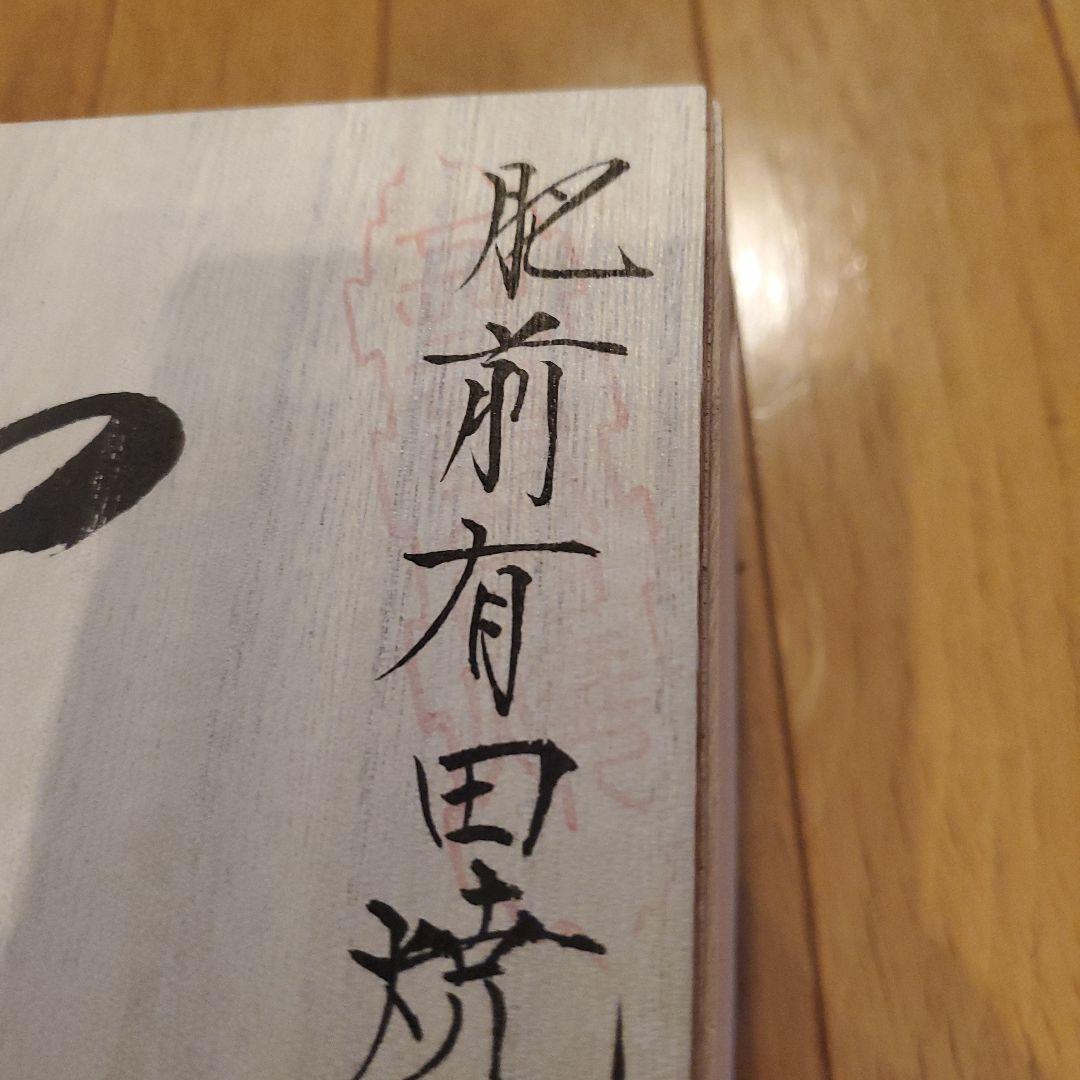 肥前有田焼